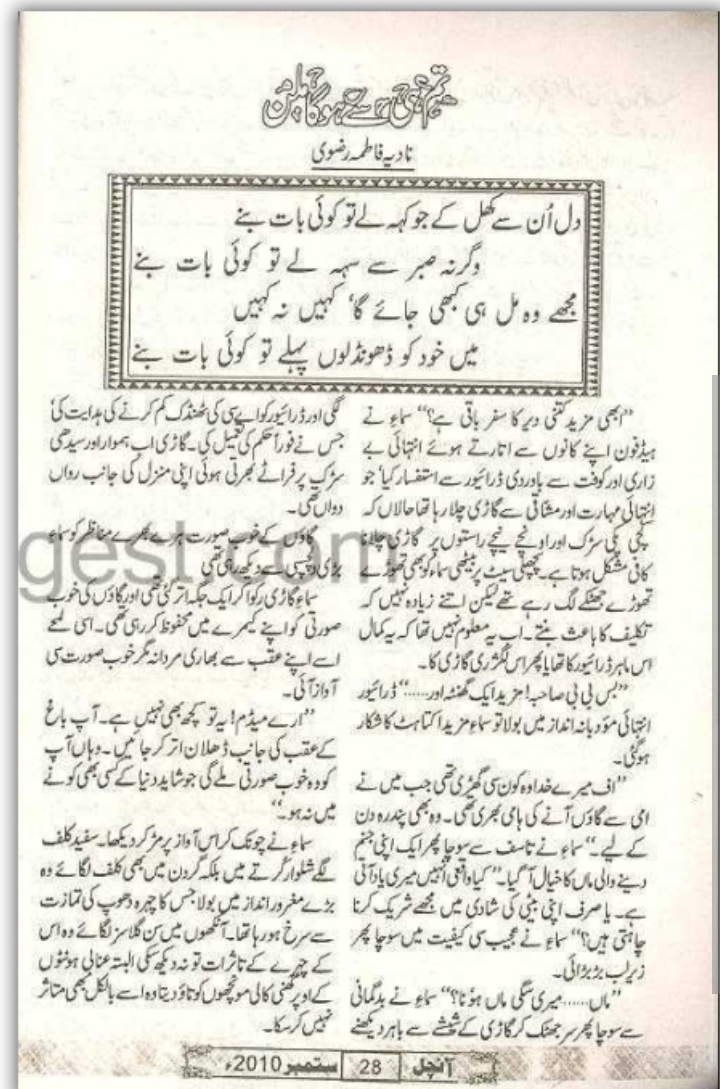 تم ہی سے ہوگا ملن
نادیہ فاطمہ رضوی
دل اُن سے کھل کے جو کہہ لے تو کوئی بات بنے
وگرنہ صبر سے سہہ لے تو کوئی بات بنے
مجھے وہ مل ہی کبھی جائے گا' کہیں نہ کہیں
میں خود کو ڈھونڈلوں پہلے تو کوئی بات بنے
"ابھی مزید کتنی دیر کا سفر باقی ہے؟" سماء نے
ہیڈفون اپنے کانوں سے اتارتے ہوئے انتہائی بے
زاری اور کوفت سے باوردی ڈرائیور سے استفسار کیا' جو
انتہائی مہارت اور مشاقی سے گاڑی چلا رہا تھا حالاں کہ
کچی پکی سڑک اور اونچے نیچے راستوں پر گاڑی چلانا
کافی مشکل ہوتا ہے۔ پچھلی سیٹ پر بیٹھی سماء کو بھی تھوڑے
تھوڑے جھٹکے لگ رہے تھے لیکن اتنے زیادہ نہیں کہ
تکلیف کا باعث بنتے۔ اب یہ معلوم نہیں تھا کہ یہ کمال
اس ماہر ڈرائیور کا تھا یا پھر اس لگژری گاڑی کا۔
"بس بی بی صاحبہ! مزید ایک گھنٹہ اور......" ڈرائیور
انتہائی مؤدبانہ انداز میں بولا تو سماء مزید اکتاہٹ کا شکار
ہوگئی۔
"اف میرے خدا وہ کون سی گھڑی تھی جب میں نے
امی سے گاؤں آنے کی ہامی بھری تھی۔ وہ بھی پندرہ دن
کے لیے۔" سماء نے تاسف سے سوچا پھر ایک اپنی جنم
دینے والی ماں کا خیال آ گیا۔ "کیا واقعی اُنہیں میری یاد آئی
ہے۔ یا صرف اپنی بیٹی کی شادی میں مجھے شریک کرنا
چاہتی ہیں؟" سماء نے عجیب سی کیفیت میں سوچا پھر
زیرلب بڑبڑائی۔
"ماں......میری سگی ماں ہوُنا؟" سماء نے بدگمانی
سے سوچا پھر سر جھٹک کر گاڑی کے شیشے سے باہر دیکھنے
لگی اور ڈرائیور کو اے سی کی ٹھنڈک کم کرنے کی ہدایت کی'
جس نے فوراً حکم کی تعمیل کی۔ گاڑی اب ہموار اور سیدھی
سڑک پر فراٹے بھرتی ہوئی اپنی منزل کی جانب رواں
دواں تھی۔
گاؤں کے خوب صورت ہرے بھرے مناظر کو سماء
بڑی دلچسپی سے دیکھ رہی تھی
سماء گاڑی رکوا کر ایک جگہ اتر گئی تھی اور گاؤں کی خوب
صورتی کو اپنے کیمرے میں محفوظ کر رہی تھی۔ اسی لمحے
اسے اپنے عقب سے بھاری مردانہ مگر خوب صورت سی
آواز آئی۔
"ارے میڈم! یہ تو کچھ بھی نہیں ہے۔ آپ باغ
کے عقب کی جانب ڈھلان اتر کر جائیں۔ وہاں آپ
کو وہ خوب صورتی ملے گی جو شاید دنیا کے کسی بھی کونے
میں نہ ہو۔"
سماء نے چونک کر اس آواز پر مڑ کر دیکھا۔ سفید کلف
لگے شلوار کُرتے میں بلکہ گردن میں بھی کلف لگائے وہ
بڑے مغرور انداز میں بولا جس کا چہرہ دھوپ کی تمازت
سے سرخ ہو رہا تھا۔ آنکھوں میں سن گلاسز لگائے وہ اس
کے چہرے کے تاثرات تو نہ دیکھ سکی البتہ عنابی ہونٹوں
کے اوپر گھنی کالی مونچھوں کو تاؤ دیتا وہ اسے بالکل بھی متاثر
نہیں کرسکا۔
gest.com
آنچل 28 ستمبر 2010ء